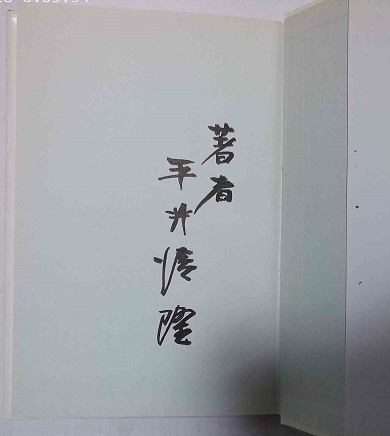 著者
平井清隆